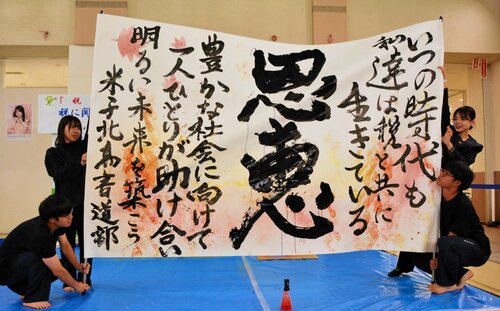 いつの時代も
私達は税と共に
生きている
恩恵
豊かな社会に向けて
一人ひとりが助け合い
明るい未来を築こう
米子北高書道部
「税
税に関